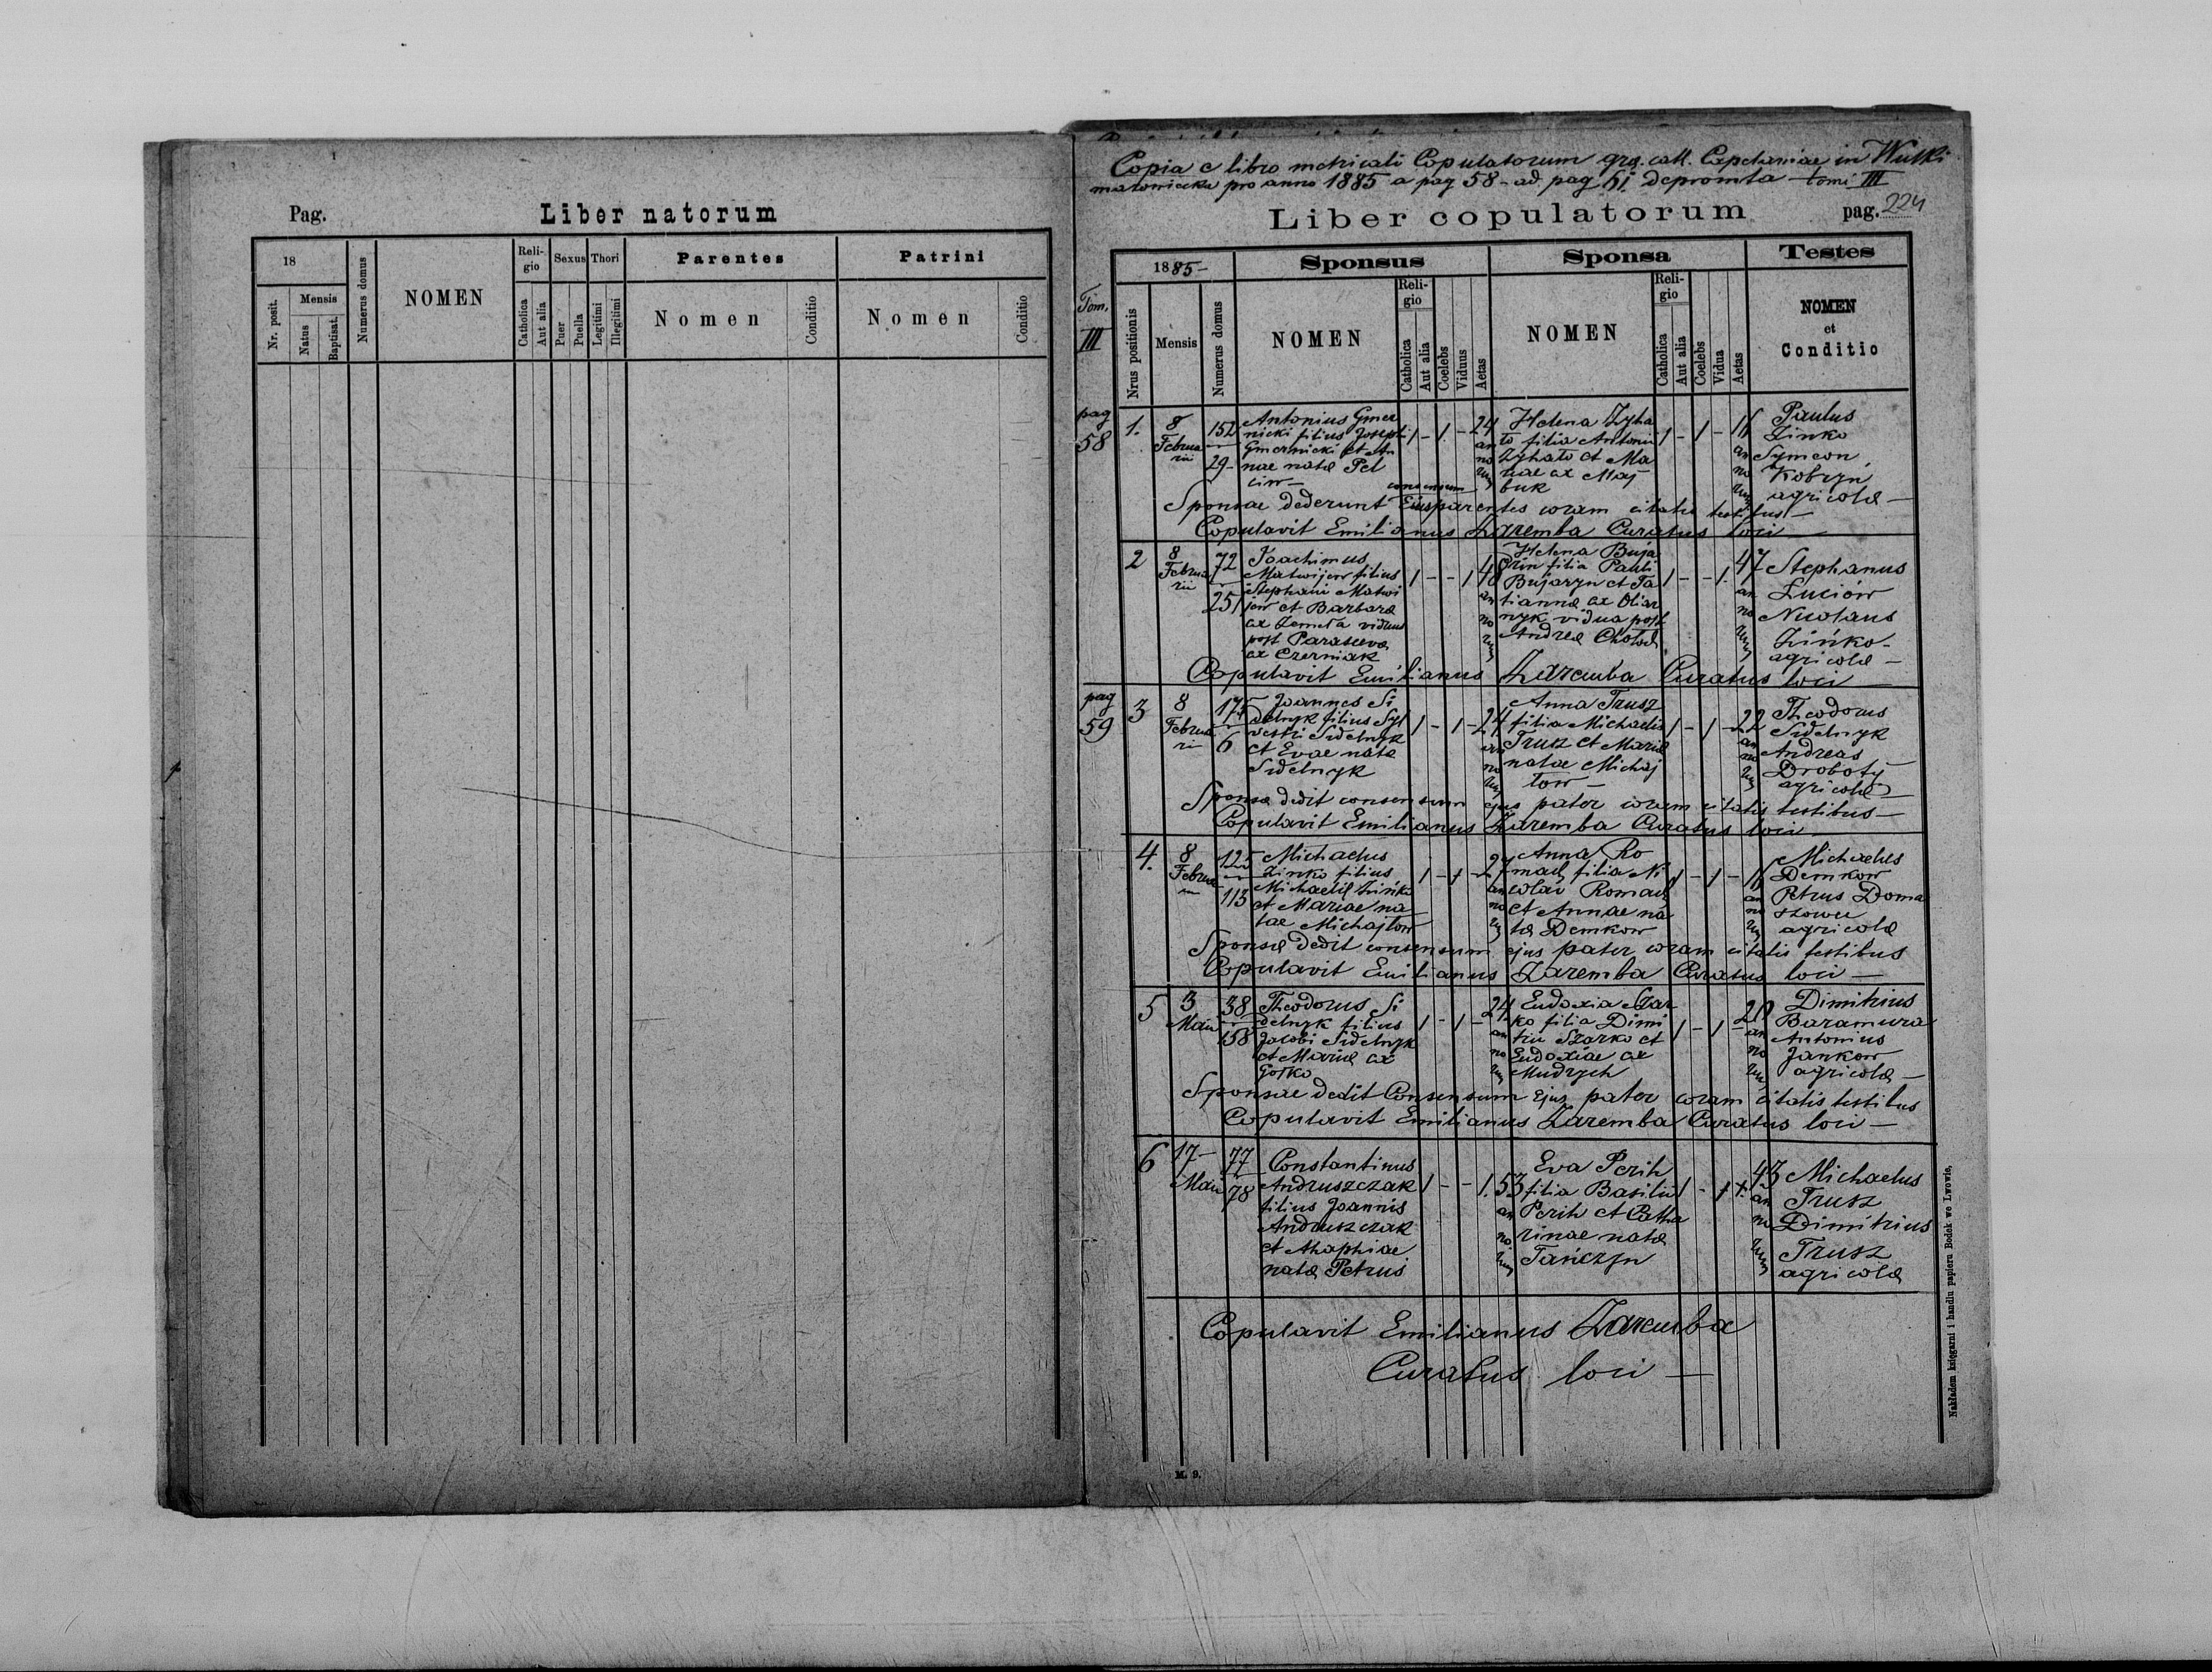 Pag.
Liber natorum
18
Nr. posit.
Mensis
Natus
Baptisat.
Numerus domus
NOMEN
Religio
Catholica
Aut alia
Sexus
Puer
Puella
Thori
Legitimi
Illegitimi
Parentes
Nomen
Conditio
Patrini
Nomen
Conditio
Copia e libro metricali Copulatorum in
pro anno 1885 a pag 58 - ad pag 61 depromta tomi III
Liber copulatorum
pag. 224
1885-
Sponsus
Sponsa
Testes
Tom.
III
Nrus positionis
Mensis
Numerus domus
NOMEN
Religio
Catholica
Aut alia
Coelebs
Viduus
Aetas
NOMEN
Religio
Catholica
Aut alia
Coelebs
Vidua
Aetas
NOMEN
et
Conditio
pag
58
1.
8
Februarii
152
29-
Antonius Gmer
nicki filius Josephi
Gmernicki et An
nae natae Pel
ciw-
24
annorum
Helena Zyha
ło filia Antonii
Zyhało et Ma
riae ex Maj
buk
annorum
Paulus
Zinko
Symeon
Kobryn
agricolae -
consensum
Sponsae dederunt Ejus parentes coram citatis testibus -
Copulavit Emilianus Zaremba Curatus loci -
2
8
Februarii
72
251
Joachimus
Matwijow filius
Stephani Matwi
jow et Barbarae
viduus
post Parasceva
ex Czerniak
48
annorum
Helena Buja
filia Pauli
et Ta
tiannae ex Oliar
nyk vidua post
Andrea
47
annorum
Stephanus
Luciów
Nicolaus
Zińko-
agricolae -
Copulavit Emilianus Zaremba Curatus loci -
pag
59
3
8
Februarii
175
6
Joannes Si
delnyk filius Syl
vestri Sidelnyk
et Evae natae
Sidelnyk
24
annorum
Anna Trusz
filia Michaelis
Trusz et Mariae
natae Michaj
low -
22
annorum
Theodorus
Sidelnyk
Andreas
Droboty
agricolae -
Sponsae dedit consensum ejus pater coram citatis testibus -
Copulavit Emilianus Zaremba Curatus loci -
4.
8
Februarii
125
113
Michaelus
Zinko filius
Michaelis Zinko
et Mariae na
tae Michajlow
27
annorum
Anna Ro
filia Ni
colai
et Annae na
tae Demkow
annorum
Michaelus
Demkow
Petrus Doma
agricolae
Sponsae dedit consensum ejus pater coram citatis testibus
Copulavit Emilianus Zaremba Curatus loci -
5
3
Maii
38
158
Theodorus Si
delnyk filius
Jacobi Sidelnyk
et Mariae ex
24
annorum
Eudoxia Szar
ko filia Dimi
trii Szarko et
Eudoxiae ex
Mudrych
20
annorum
Dimitrius
Baramura
Antonius
Jankow
agricolae -
Sponsae dedit Consensum Ejus pater coram citatis testibus
Copulavit Emilianus Zaremba Curatus loci -
6
17-
Maii
77
78
Constantinus
Andruszczak
filius Joannis
Andruszczak
et Ahaphiae
natae Petrus
53
annorum
Eva Perih
filia Basilii
Perih et Catha
rinae natae
Tańczyn
43
annorum
Michaelus
Trusz
Dimitrius
Trusz
agricolae
Copulavit Emilianus Zaremba
Curatus loci -
M. 9.
Nakładem księgarni i handlu papieru Bodek we Lwowie.